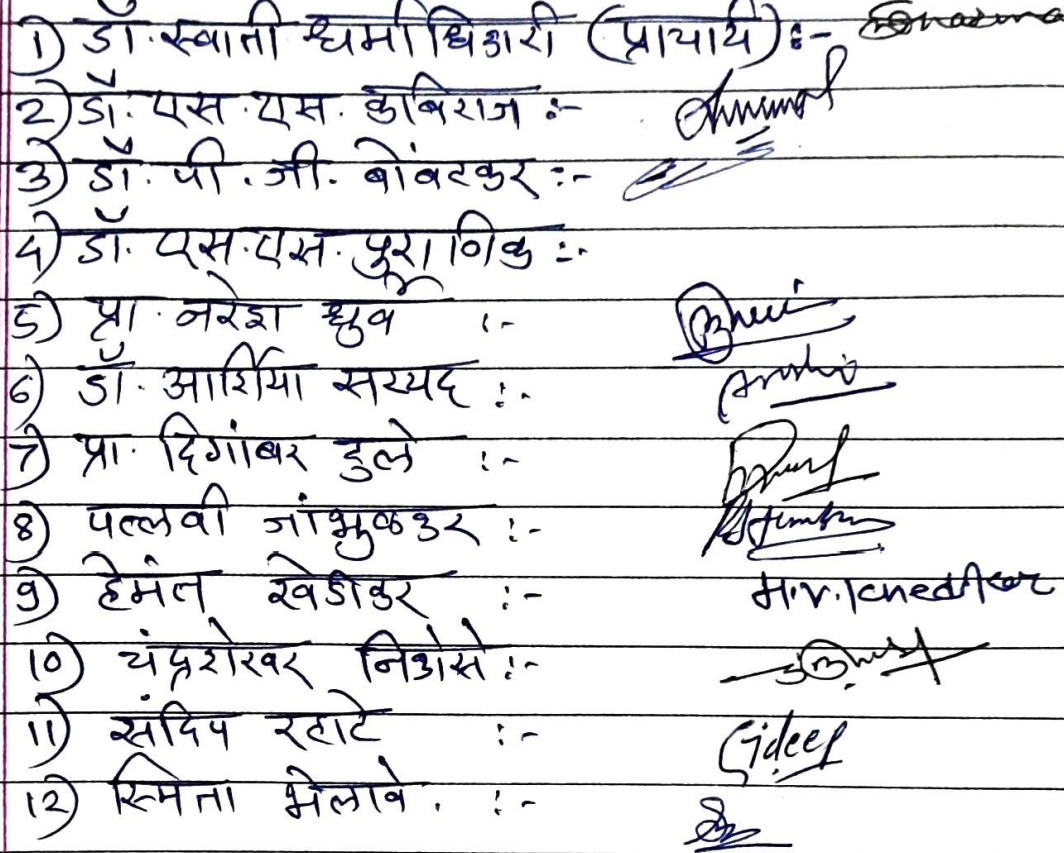 1) डॉ. स्वाती धर्माधिकारी (प्राचार्य) :-
2) डॉ. एस. एस. कविराज :-
3) डॉ. पी. जी. बोंबटकर :-
4) डॉ. एस. एस. पुराणिक :-
5) प्रा. नरेश ध्रुर्वे :-
6) डॉ. आर्शिया सय्यद :-
7) प्रा. दिगांबर टुले :-
8) पल्लवी जांभुळकर :-
9) हेमंत खेडीकर :- H.V. Khedikar
10) चंद्रशेखर निकोसे :-
11) संदिप रहाटे :-
12) स्मिता भेलावे. :-